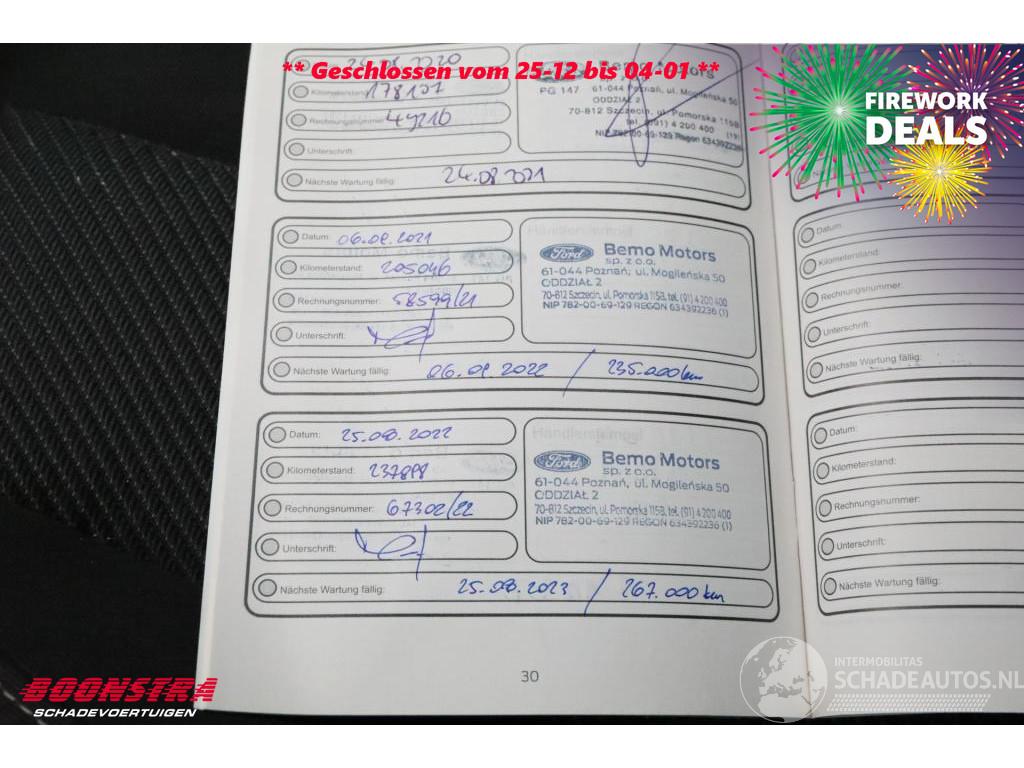 ** Geschlossen vom 25-12 bis 04-01 **
FIREWORK
DEALS
Kilometerstand: 178127
Rechnungsnummer: 49216
Unterschrift:
Nächste Wartung fällig: 24.08.2021
PG 147 61-044 Poznań, ul. Mogileńska 50
ODDZIAŁ 2
70-812 Szczecin, ul. Pomorska 115B
tel. (91) 4 200 400
NIP 782-00-69-129 Regon 634392236
Datum: 06.09.2021
Kilometerstand: 205046
Rechnungsnummer: 58599/21
Unterschrift:
Nächste Wartung fällig: 06.09.2022 / 235.000 km
Ford Bemo Motors
sp. z o.o.
61-044 Poznań, ul. Mogileńska 50
ODDZIAŁ 2
70-812 Szczecin, ul. Pomorska 115B, tel. (91) 4 200 400
NIP 782-00-69-129 REGON 634392236 (1)
Datum: 25.08.2022
Kilometerstand: 237898
Rechnungsnummer: 67302/22
Unterschrift:
Nächste Wartung fällig: 25.08.2023 / 267.000 km
Ford Bemo Motors
sp. z o.o.
61-044 Poznań, ul. Mogileńska 50
ODDZIAŁ 2
70-812 Szczecin, ul. Pomorska 115B, tel. (91) 4 200 400
NIP 782-00-69-129 REGON 634392236 (1)
30
Datum:
Kilometerstand:
Rechnungsnummer:
Unterschrift:
Nächste Wartung fällig:
Datum:
Kilometerstand:
Rechnungsnummer:
Unterschrift:
Nächste Wartung fällig:
BOONSTRA
SCHADEVOERTUIGEN
INTERMOBILITAS
SCHADEAUTOS.NL